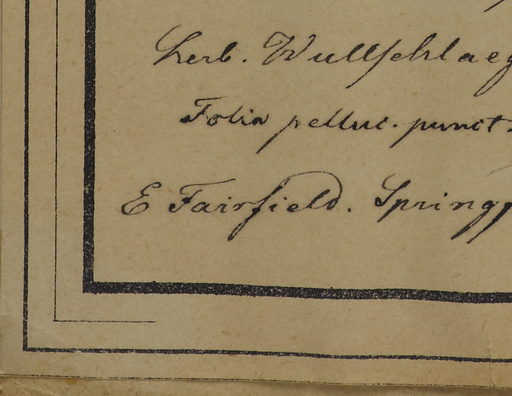 Herb. Wullschlaeg
Folia pelluc. punct.
E Fairfield. Spring